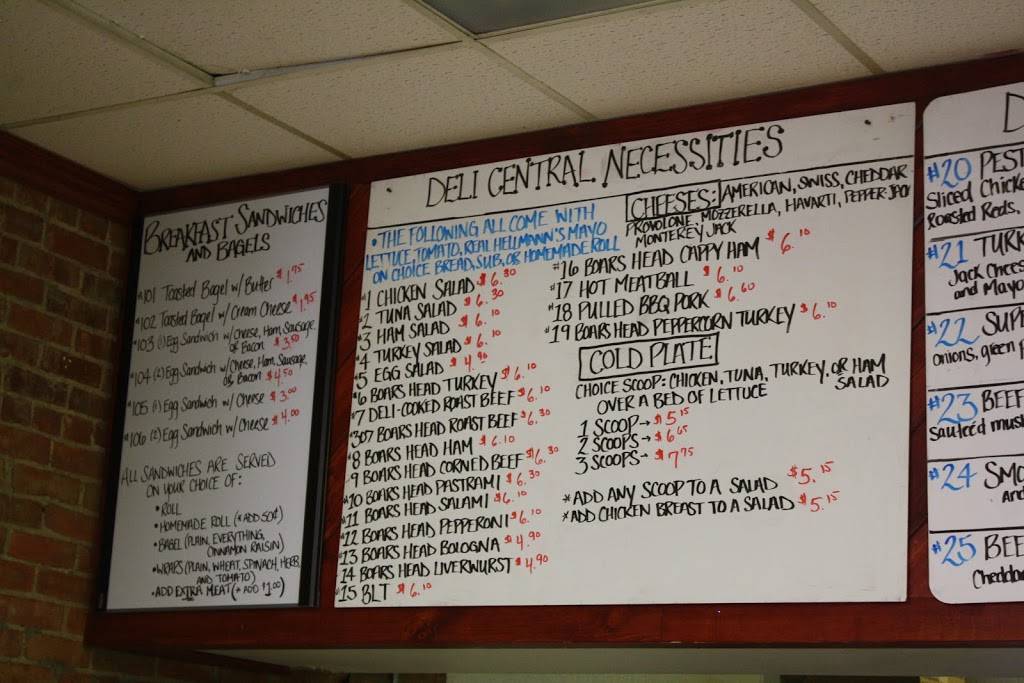 BREAKFAST SANDWICHES
AND BAGELS
#101 Toasted Bagel w/Butter $1.75
#102 Toasted Bagel w/Cream Cheese $1.95
#103 (1) Egg Sandwich w/Cheese, Ham, Sausage,
or Bacon $3.50
#104 (2) Egg Sandwich w/Cheese, Ham, Sausage,
or Bacon $4.50
#105 (1) Egg Sandwich w/ Cheese $3.00
#106 (2) Egg Sandwich w/ Cheese $4.00
ALL SANDWICHES ARE SERVED
ON YOUR CHOICE OF:
• ROLL
• HOMEMADE ROLL (*ADD 50¢)
• BAGEL (PLAIN, EVERYTHING,
CINNAMON RAISIN)
• WRAPS (PLAIN, WHEAT, SPINACH, HERB,
AND TOMATO)
• ADD EXTRA MEAT (*ADD $1.00)
DELI CENTRAL NECESSITIES
• THE FOLLOWING ALL COME WITH
LETTUCE, TOMATO, REAL HELLMANN'S MAYO
ON CHOICE BREAD, SUB, OR HOMEMADE ROLL
#1 CHICKEN SALAD $6.30
#2 TUNA SALAD $6.30
#3 HAM SALAD $6.10
#4 TURKEY SALAD $6.10
#5 EGG SALAD $4.90
#6 BOARS HEAD TURKEY $6.10
#7 DELI-COOKED ROAST BEEF $6.10
#307 BOARS HEAD ROAST BEEF $6.30
#8 BOARS HEAD HAM $6.10
#9 BOARS HEAD CORNED BEEF $6.30
#10 BOARS HEAD PASTRAMI $6.30
#11 BOARS HEAD SALAMI $6.10
#12 BOARS HEAD PEPPERONI $6.10
#13 BOARS HEAD BOLOGNA $4.90
#14 BOARS HEAD LIVERWURST $4.90
#15 BLT $6.10
CHEESES: AMERICAN, SWISS, CHEDDAR
PROVOLONE, MOZZERELLA, HAVARTI, PEPPER JACK
MONTEREY JACK
#16 BOARS HEAD CAPPY HAM $6.10
#17 HOT MEATBALL $6.10
#18 PULLED BBQ PORK $6.60
#19 BOARS HEAD PEPPERCORN TURKEY $6.10
COLD PLATE
CHOICE SCOOP: CHICKEN, TUNA, TURKEY, OR HAM
SALAD
OVER A BED OF LETTUCE
1 SCOOP→ $5.15
2 SCOOPS→ $6.65
3 SCOOPS→ $7.75
*ADD ANY SCOOP TO A SALAD $5.15
*ADD CHICKEN BREAST TO A SALAD $5.15
D
#20 PEST
Sliced Chicke
Roasted Reds,
#21 TURK
Jack Chees
and Mayo
#22 SUP
onions, green p
#23 BEEF
Sauteéd mush
#24 SMO
and
#25 BEE
Cheddar